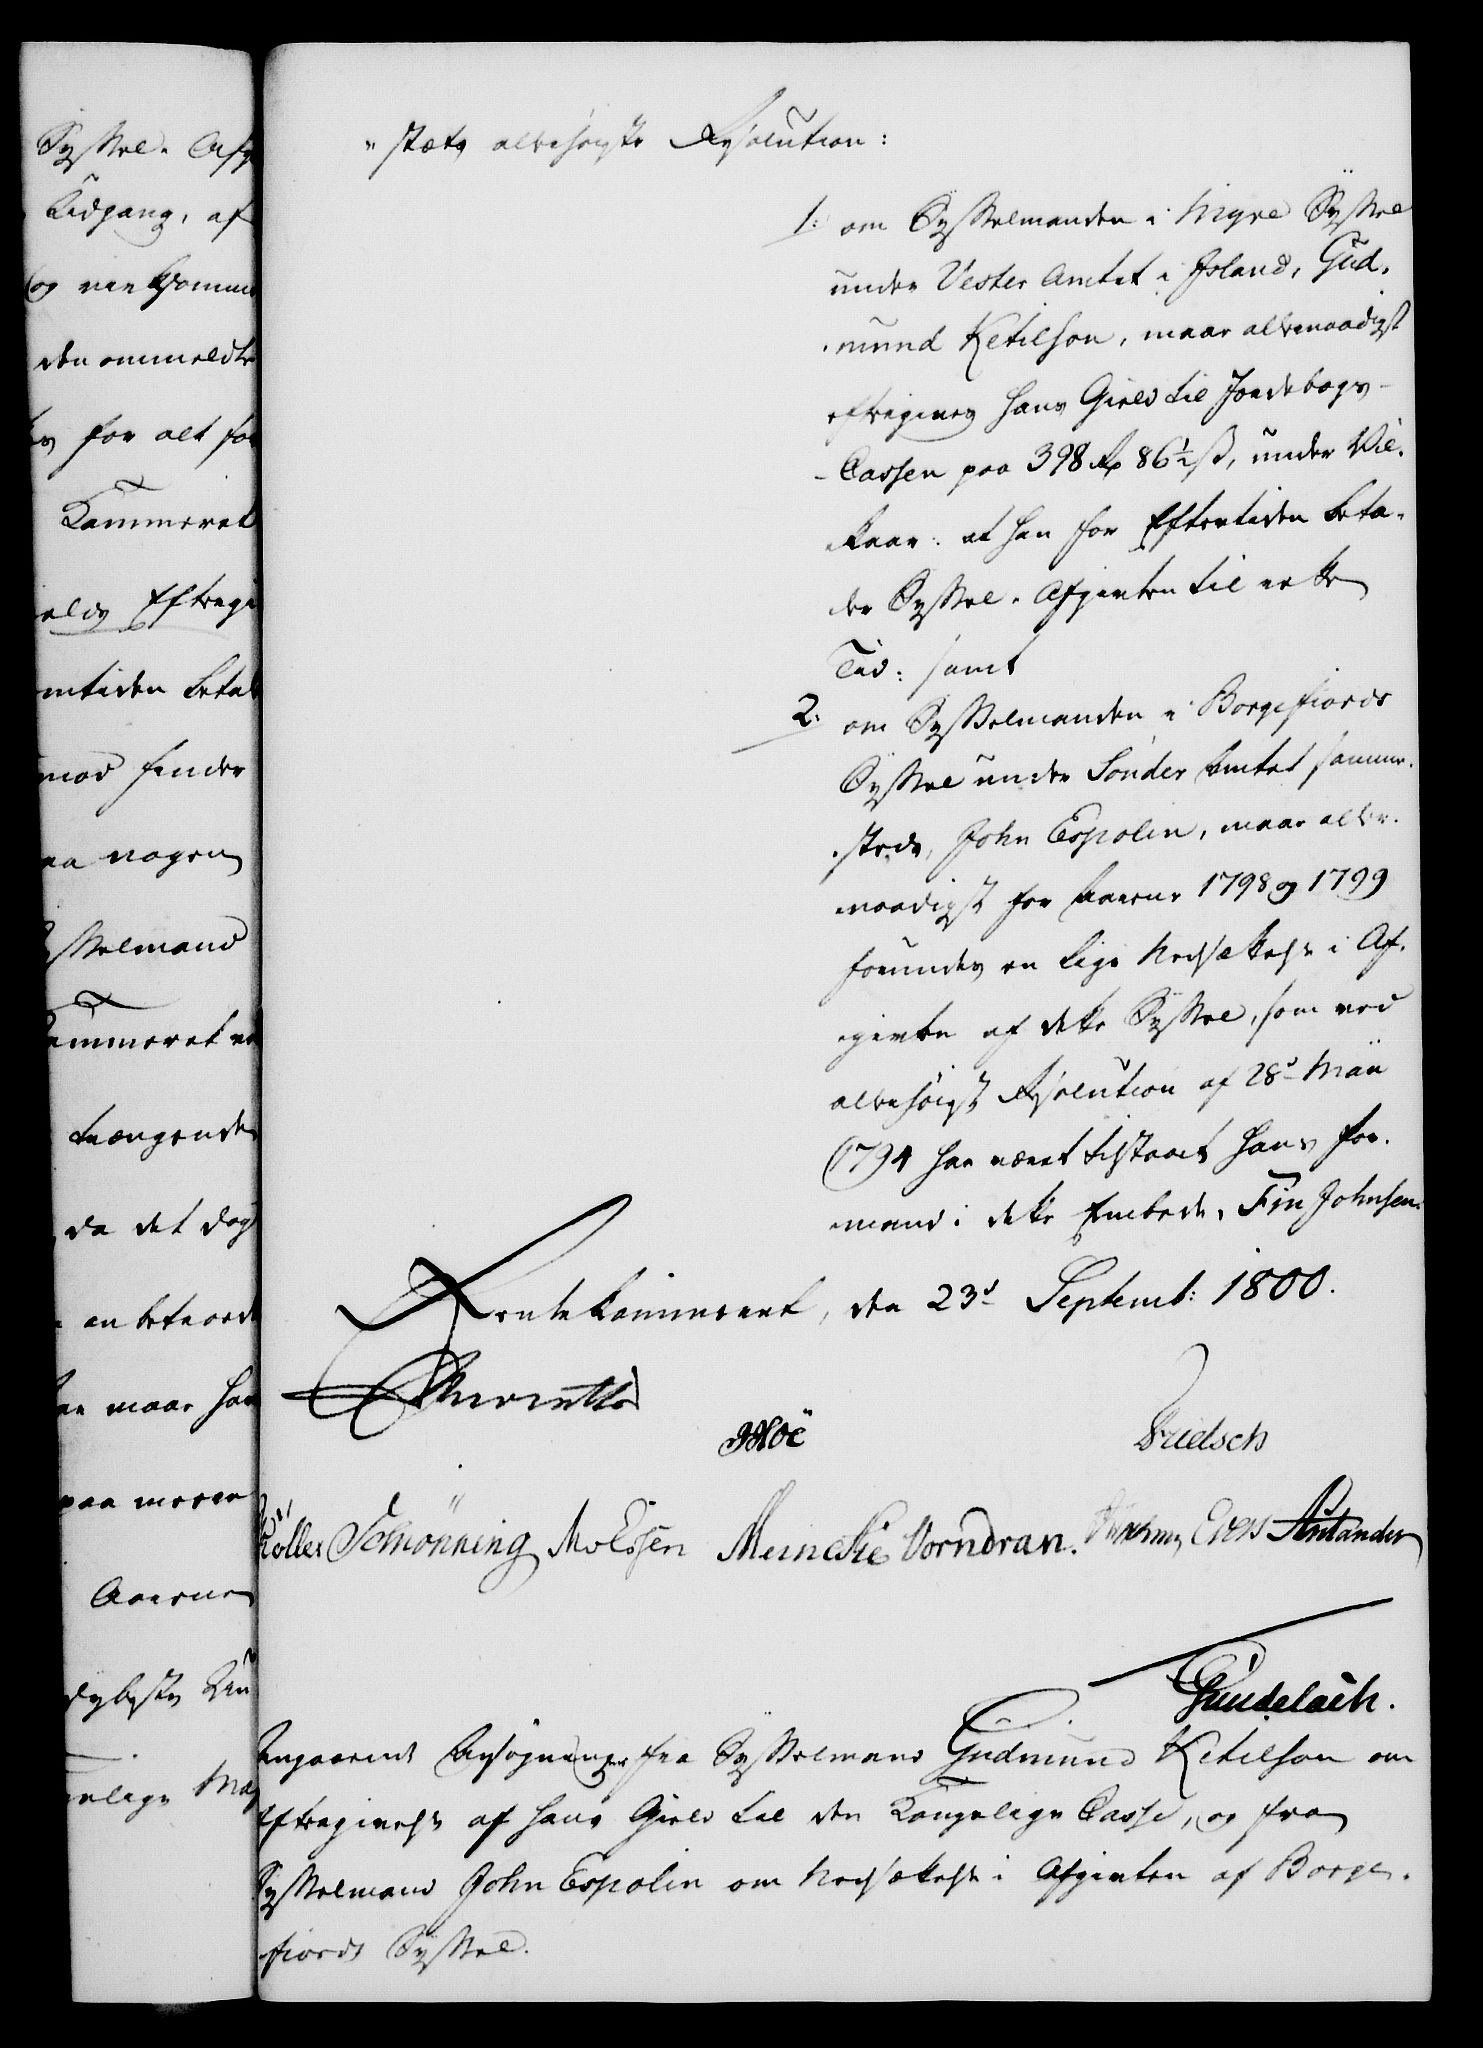 Syssel-Afg
Tidgang, af
og
den ommeldte
for alt
Kammeret
Eftergi
mtiden betal
mod finder
paa nogen
ysselmand
Kammeret
trængende
da det dog
an
maa
paa
Aarene
dybeste Un
elige Maj
"stæts allerhøieste Resolution:
1: om Sysselmanden i Myre Syssel
under Vester Amtet i Island, Gud-
mund Ketilson, maae allernaadigst
eftergives hans Gield til Jordebogs-
-Cassen paa 398 Rd 86½ ß, under Vil-
kaar: at han for Eftertiden beta-
ler Syssel-Afgivten til rette
Tid: samt
2: om Sysselmanden i Borgefiords
Syssel under Sønder Amtet samme-
steds, John Espolin, maae aller-
naadigst for Aarene 1798 og 1799
forundes en lige Nedsættelse i Af-
givten af dette Syssel, som ved
allerhøiest Resolution af 28d Maii
1794 har været tilstaaet hans For-
mand i dette Embede, Fin Johnsen.
Rentekammeret, den 23d Septemb: 1800.
Reventlow
JMoe
Trietsch
Koller Schiönning MolEssen Meincke Vorndran. Evers Antander
Gundelach.
Angaaende Ansøgninger fra Sysselmand Gudmund Ketilson om
Eftergivelse af hans Gield til den Kongelige Casse, og fra
Sysselmand John Espolin om Nedsættelse i Afgivten af Borge-
fiords Syssel.